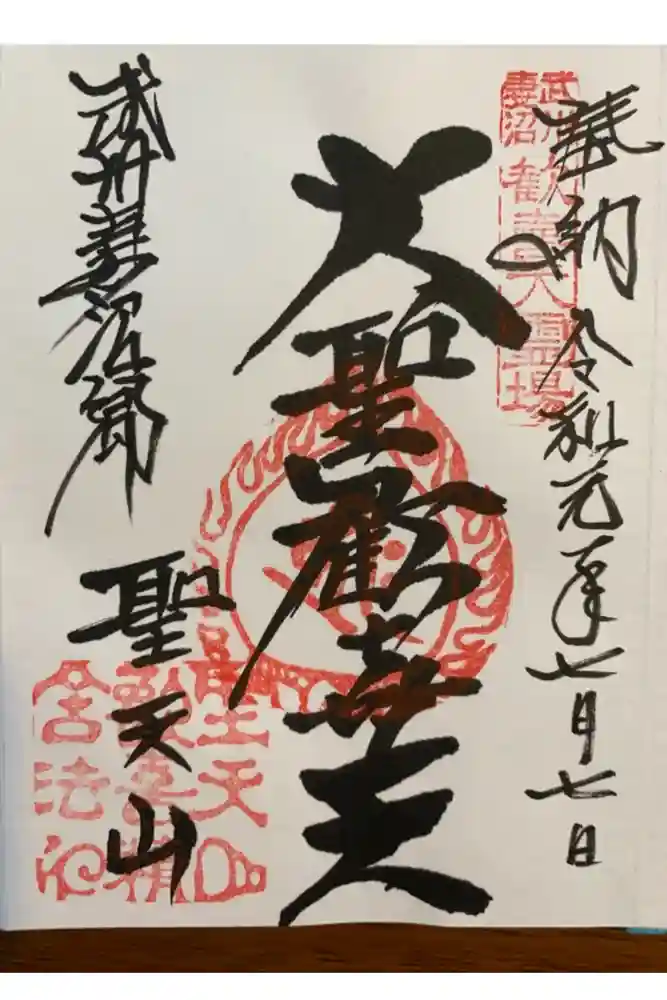 奉納 令和元年七月七日
武州妻沼 歓喜天霊場
大聖歓喜天
武州妻沼郷
聖天山
聖天山
歓喜精
舎法印